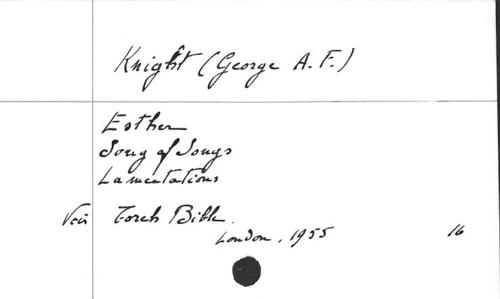 Knight (George A. F.)
Esther
Song of Songs
Lamentations
Voir Torch Bible.
London, 1955 16